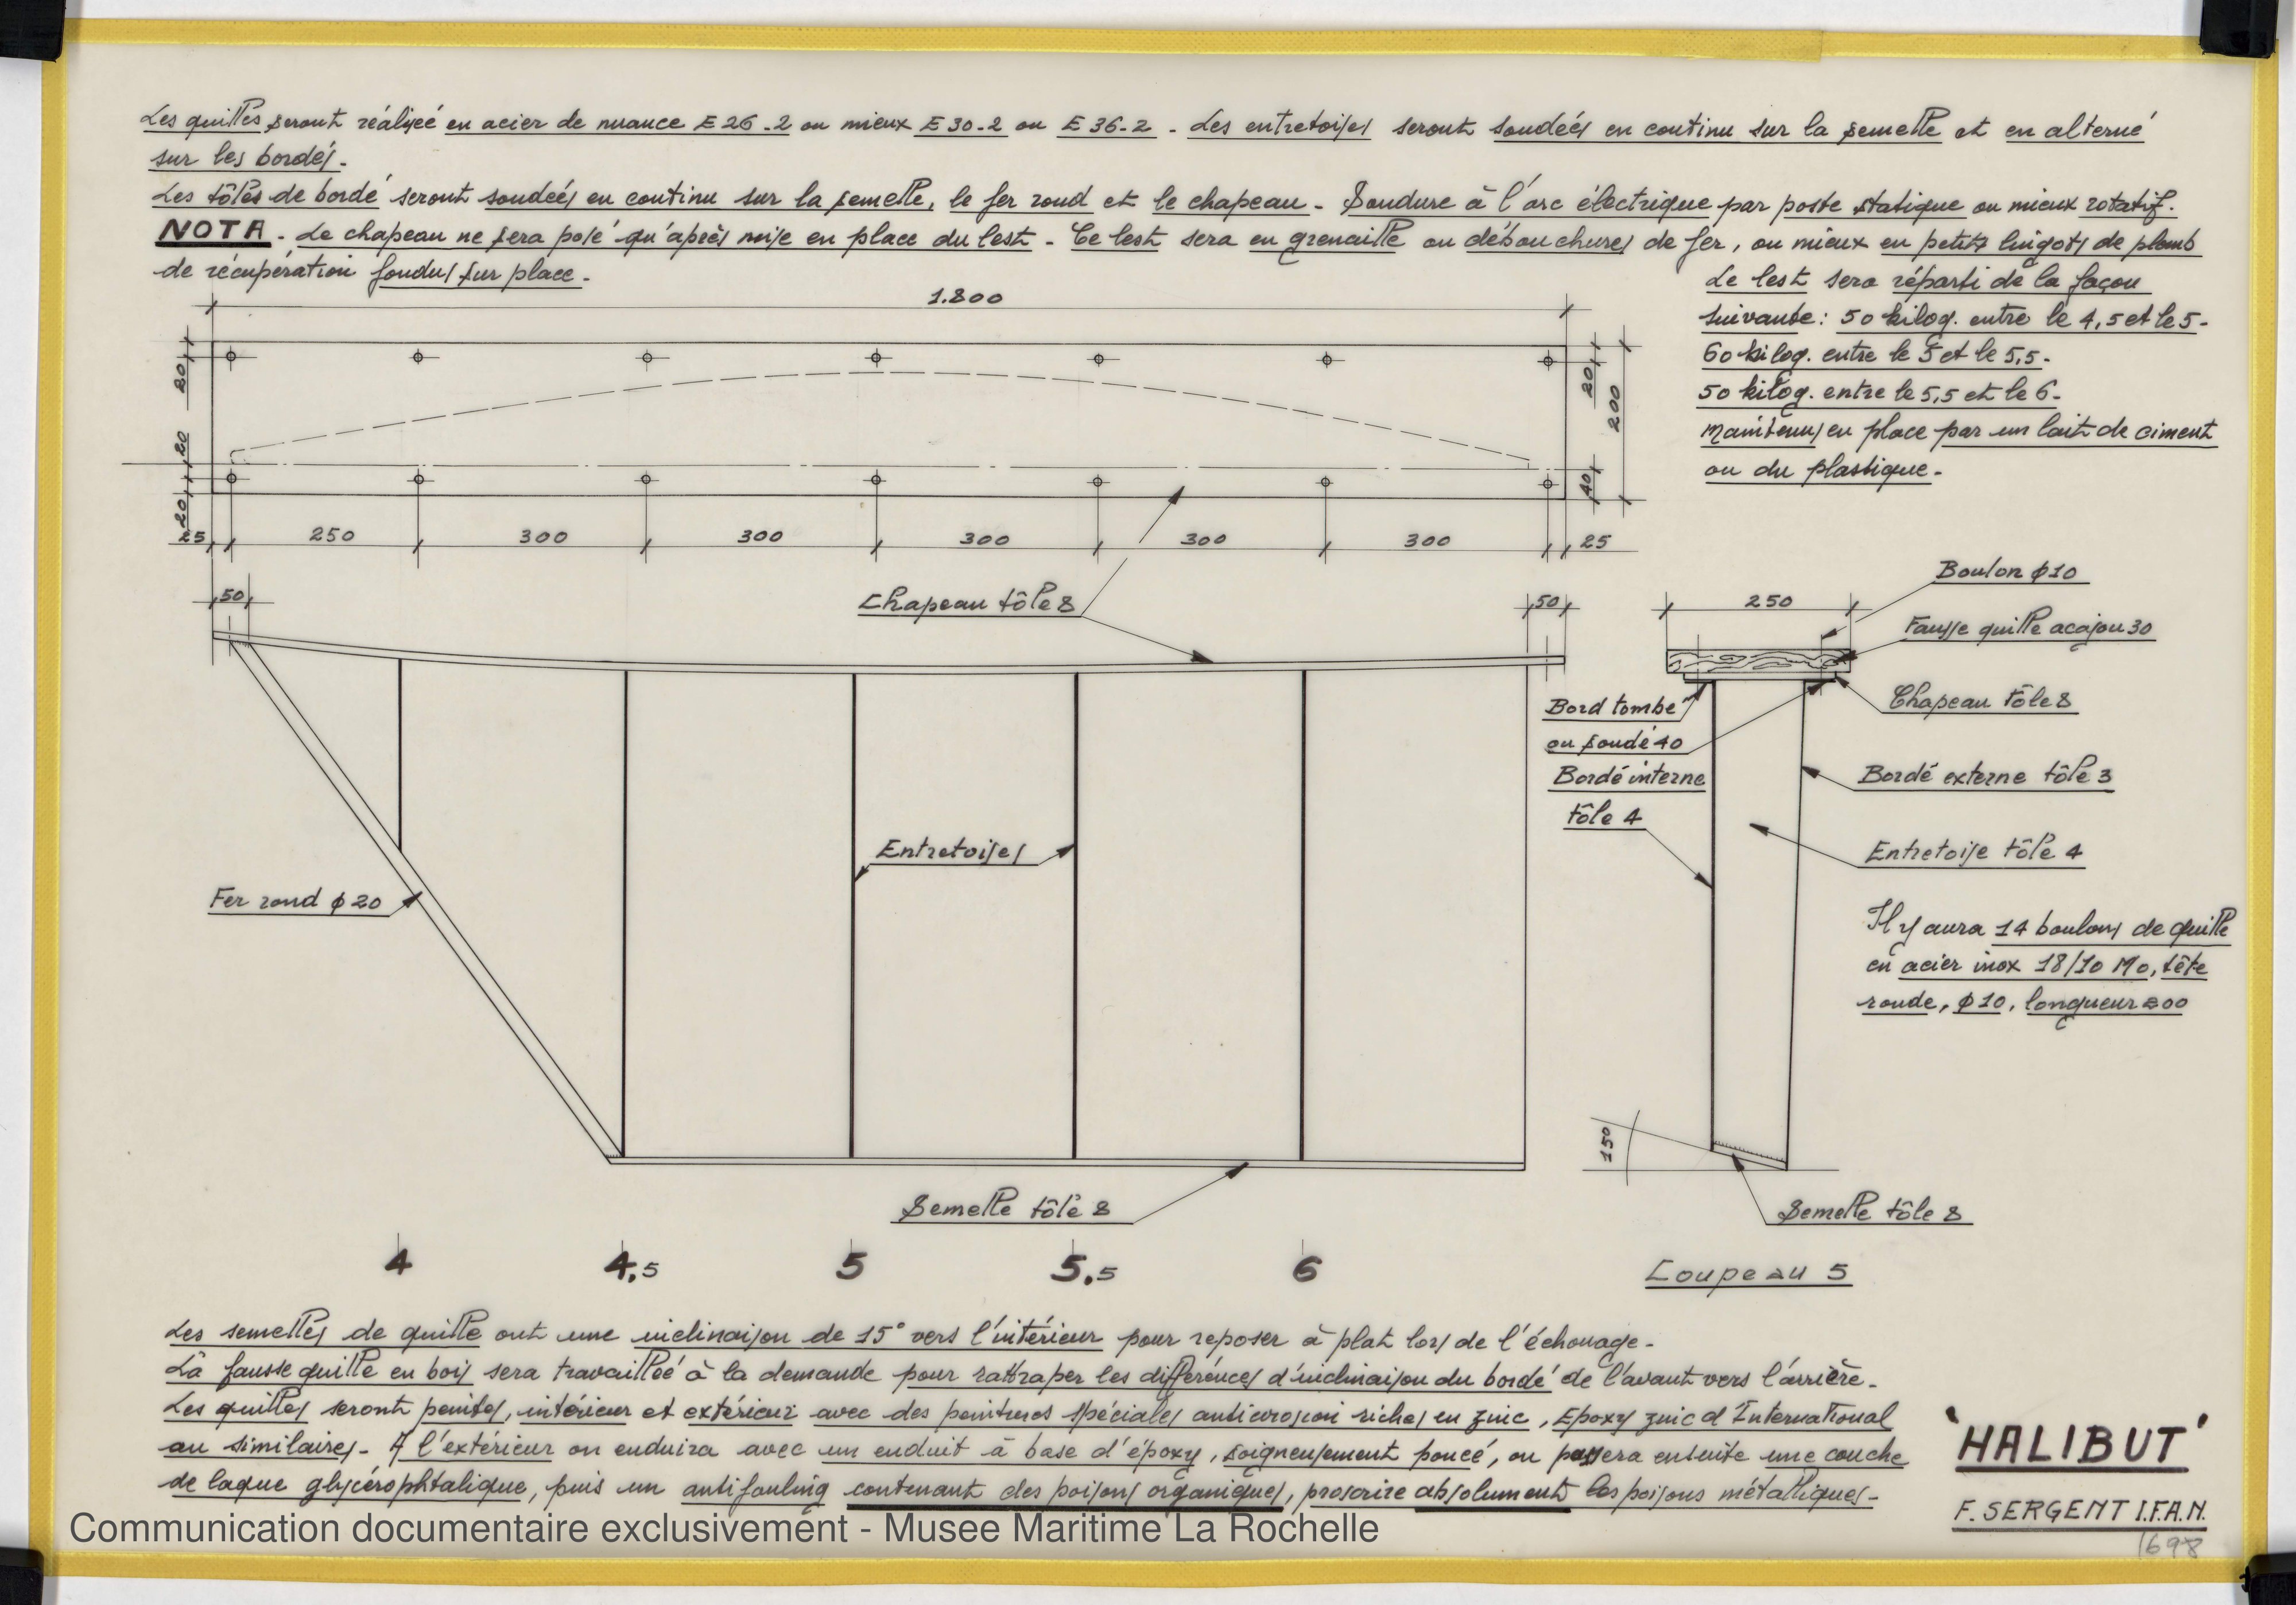 Les quilles seront réalisée en acier de nuance E 26-2 ou mieux E 30-2 ou E 36-2 - Les entretoises seront soudées en continu sur la semelle et en alterné
sur les bordés.
Les tôles de bordé seront soudées en continu sur la semelle, le fer rond et le chapeau - Soudure à l'arc électrique par poste statique ou mieux rotatif.
NOTA - Le chapeau ne sera posé qu'après mise en place du lest - Ce lest sera en grenaille ou débouchures de fer, ou mieux en petits lingots de plomb
de récupération fondus sur place -
Le lest sera réparti de la façon
suivante : 50 kilog. entre le 4,5 et le 5 -
60 kilog. entre le 5 et le 5,5 -
50 kilog. entre le 5,5 et le 6 -
maintenus en place par un lait de ciment
ou du plastique -
1.800
20
20
20
20
200
40
25
250
300
300
300
300
300
25
50
Chapeau tôle 8
50
250
Boulon φ10
Fausse quille acajou 30
Bord tombé
ou soudé 40
Chapeau tôle 8
Bordé interne
tôle 4
Bordé externe tôle 3
Entretoises
Entretoise tôle 4
Fer rond φ 20
Il y aura 14 boulons de quille
en acier inox 18/10 Mo, tête
ronde, φ10, longueur 200
15°
Semelle tôle 8
Semelle tôle 8
4
4,5
5
5,5
6
Coupe au 5
Les semelles de quille ont une inclinaison de 15° vers l'intérieur pour reposer à plat lors de l'échouage -
La fausse quille en bois sera travaillée à la demande pour rattraper les différences d'inclinaison du bordé de l'avant vers l'arrière -
Les quilles seront peintes, intérieur et extérieur avec des peintures spéciales anticorosion riches en zinc, Epoxy zinc d'International
au similaires - A l'extérieur on enduira avec un enduit à base d'époxy, soigneusement poncé, on passera ensuite une couche
de laque glycérophtalique, puis un antifouling contenant des poisons organiques, proscrire absolument les poisons métalliques -
'HALIBUT'
F. SERGENT I.F.A.N.
1698
Communication documentaire exclusivement - Musee Maritime La Rochelle